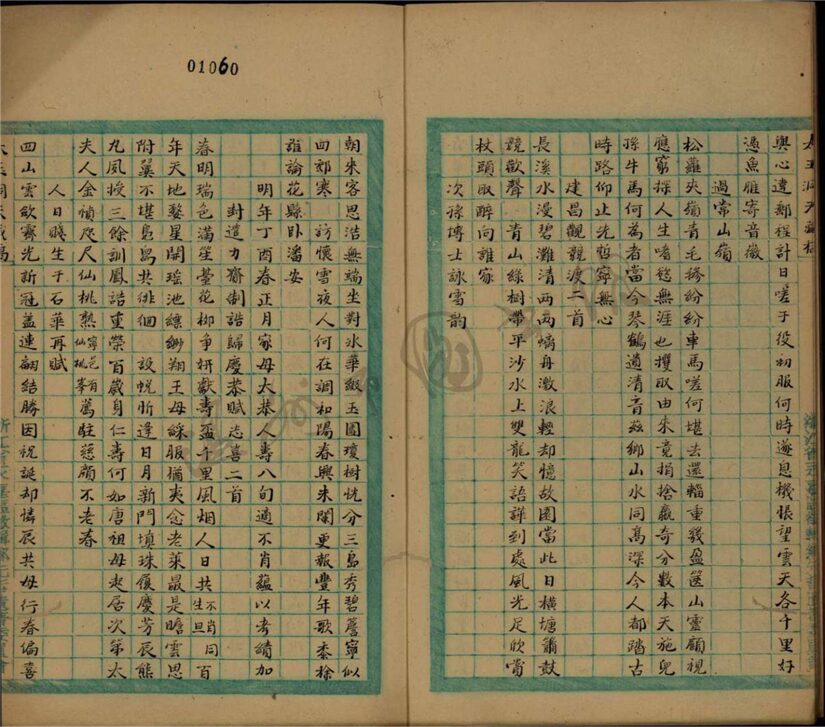 與心違郵程計日嗟于役初服何時遂息機悵望雲天各千里好
憑魚雁寄音徽
過常山嶺
松蘿夾嶺青毛捲紛紛車馬嗟何堪去還輜重幾盈篋山靈顧視
應竊探人生嗜慾無涯也攫取由来竟捐捨羸奇分數本天施兒
孫牛馬何為者當今琴鶴遺清音茲鄉山水同高深今人都踏古
時路仰止先哲寧無心
建昌觀競渡二首
長溪水漫碧灘清两两螭舟激浪輕却憶故園當此日橫塘簫鼓
競歡聲 青山綠樹帶平沙水上雙龍笑語譁到處風光足欣賞
杖頭取醉向誰家
次孫博士詠雪韵
01060
朝来客思浩無端坐對氷華綴玉團瓊樹恍分三島秀碧簷寧似
四郊寒 訪懷雪夜人何在調和陽春興未闌更報豐年歌黍稌
誰論花縣卧潘安
明年丁酉春正月家母大恭人壽八旬適不肖蘊以考績加
封遣力齋制誥歸慶恭賦志喜二首
春明瑞色滿崖臺花柳爭妍獻壽盃千里風烟人日共不肖生旦同百
年天地婺星開瑤池縹緲翔王母綵服猶夷念老萊最是瞻雲思
附翼不堪鳧舄共徘徊 設帨昕逢日月新門填珠履慶芳辰熊
九風授三餘訓鳳誥重榮百歲身仁壽何如唐祖母起居次第太
夫人金幀咫尺仙桃熟寧邑有仙桃峯薦駐慈顏不老春
人日賤生于石華再賦
四山雲飲霽光新冠蓋連翩結勝因祝誕却憐辰共母行春偏喜